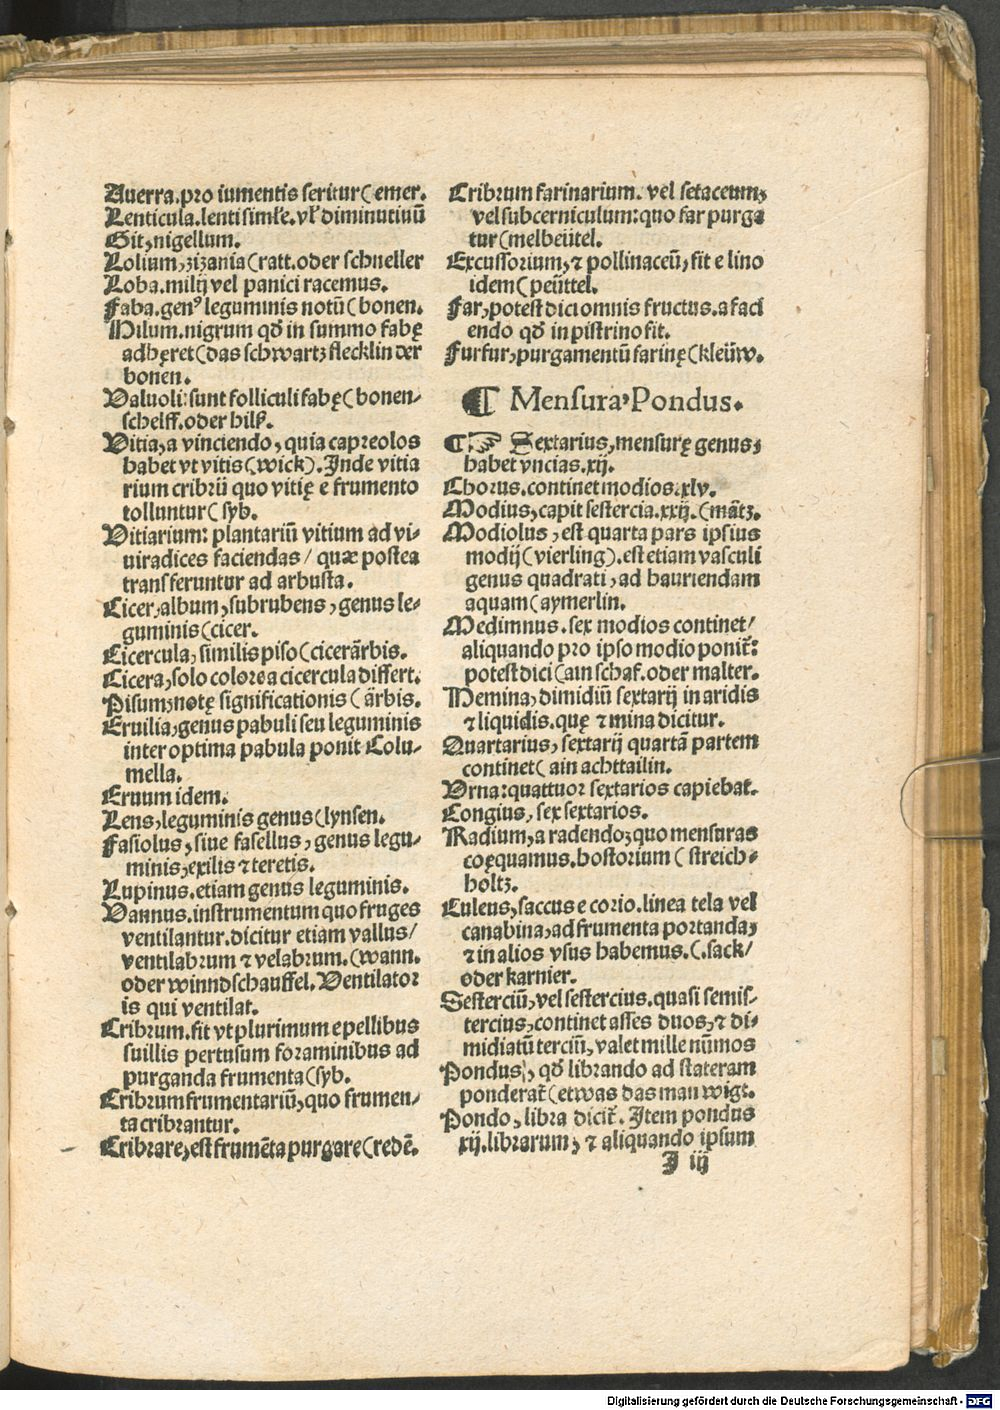 Auerra.pro iumentis seritur(emer.
Lenticula.lenti simłe.vł diminutiuū
Git,nigellum.
Lolium,zizania(ratt.oder schneller
Loba.milij vel panici racemus.
Faba.genꝰ leguminis notū(bonen.
Hilum.nigrum qđ in summo fabę
adhęret(das schwartz flecklin der
bonen.
Valuoli:sunt folliculi fabę(bonen-
schelff.oder hilß.
Vitia,a vinciendo,quia capreolos
habet vt vitis(wick).Inde vitia
rium cribrū quo vitię e frumento
tolluntur(syb.
Vitiarium: plantariū vitium ad vi-
uiradices faciendas/ quæ postea
transferuntur ad arbusta.
Cicer,album,subrubens,genus le-
guminis(cicer.
Cicercula,similis piso(cicerärbis.
Cicera,solo colore a cicercula differt.
Pisum,notę significationis(ärbis.
Eruilia,genus pabuli seu leguminis
inter optima pabula ponit Colu-
mella.
Eruum idem.
Lens,leguminis genus(lynsen.
Fasiolus,siue fasellus,genus legu-
minis,exilis ⁊ teretis.
Lupinus.etiam genus leguminis.
Vannus.instrumentum quo fruges
ventilantur.dicitur etiam vallus/
ventilabrum ⁊ velabrum.(wann.
oder winndschauffel.Ventilator
is qui ventilat.
Cribrum.fit vt plurimum e pellibus
suillis pertusum foraminibus ad
purganda frumenta(syb.
Cribrum frumentariū,quo frumen-
ta cribrantur.
Cribrare,est frumēta purgare(redē.
Cribrum farinarium. vel setaceum,
vel subcerniculum:quo far purga
tur(melbeütel.
Excussorium,⁊ pollinaceū,fit e lino
idem(peüttel.
Far,potest dici omnis fructus.a faci
endo qđ in pistrino fit.
Furfur,purgamentū farinę(kleüw.
¶ Mensura,Pondus.
¶☞ Sextarius,mensurę genus,
habet vncias.xij.
Chorus.continet modios.xlv.
Modius,capit sestercia.xxij.(mätz.
Modiolus,est quarta pars ipsius
modij(vierling).est etiam vasculi
genus quadrati,ad hauriendam
aquam(aymerlin.
Medimnus.sex modios continet/
aliquando pro ipso modio ponit̃:
potest dici(ain schaf.oder malter.
Hemina,dimidiū sextarij in aridis
⁊ liquidis.quę ⁊ mina dicitur.
Quartarius,sextarij quartā partem
continet(ain achttailin.
Vrna:quattuor sextarios capiebat.
Congius,sex sextarios.
Radium,a radendo,quo mensuras
coęquamus.hostorium(streich-
holtz.
Culeus,saccus e corio.linea tela vel
canabina,ad frumenta portanda,
⁊ in alios vsus habemus.(.sack/
oder karnier.
Sesterciū,vel sestercius.quasi semis-
tercius,continet asses duos,⁊ di-
midiatū terciū,valet mille nūmos
Pondus,qđ librando ad stateram
ponderat̃(etwas das man wigt.
Pondo,libra dicit̃.Item pondus
xij.librarum,⁊ aliquando ipsum
I iij
Digitalisierung gefördert durch die Deutsche Forschungsgemeinschaft - DFG